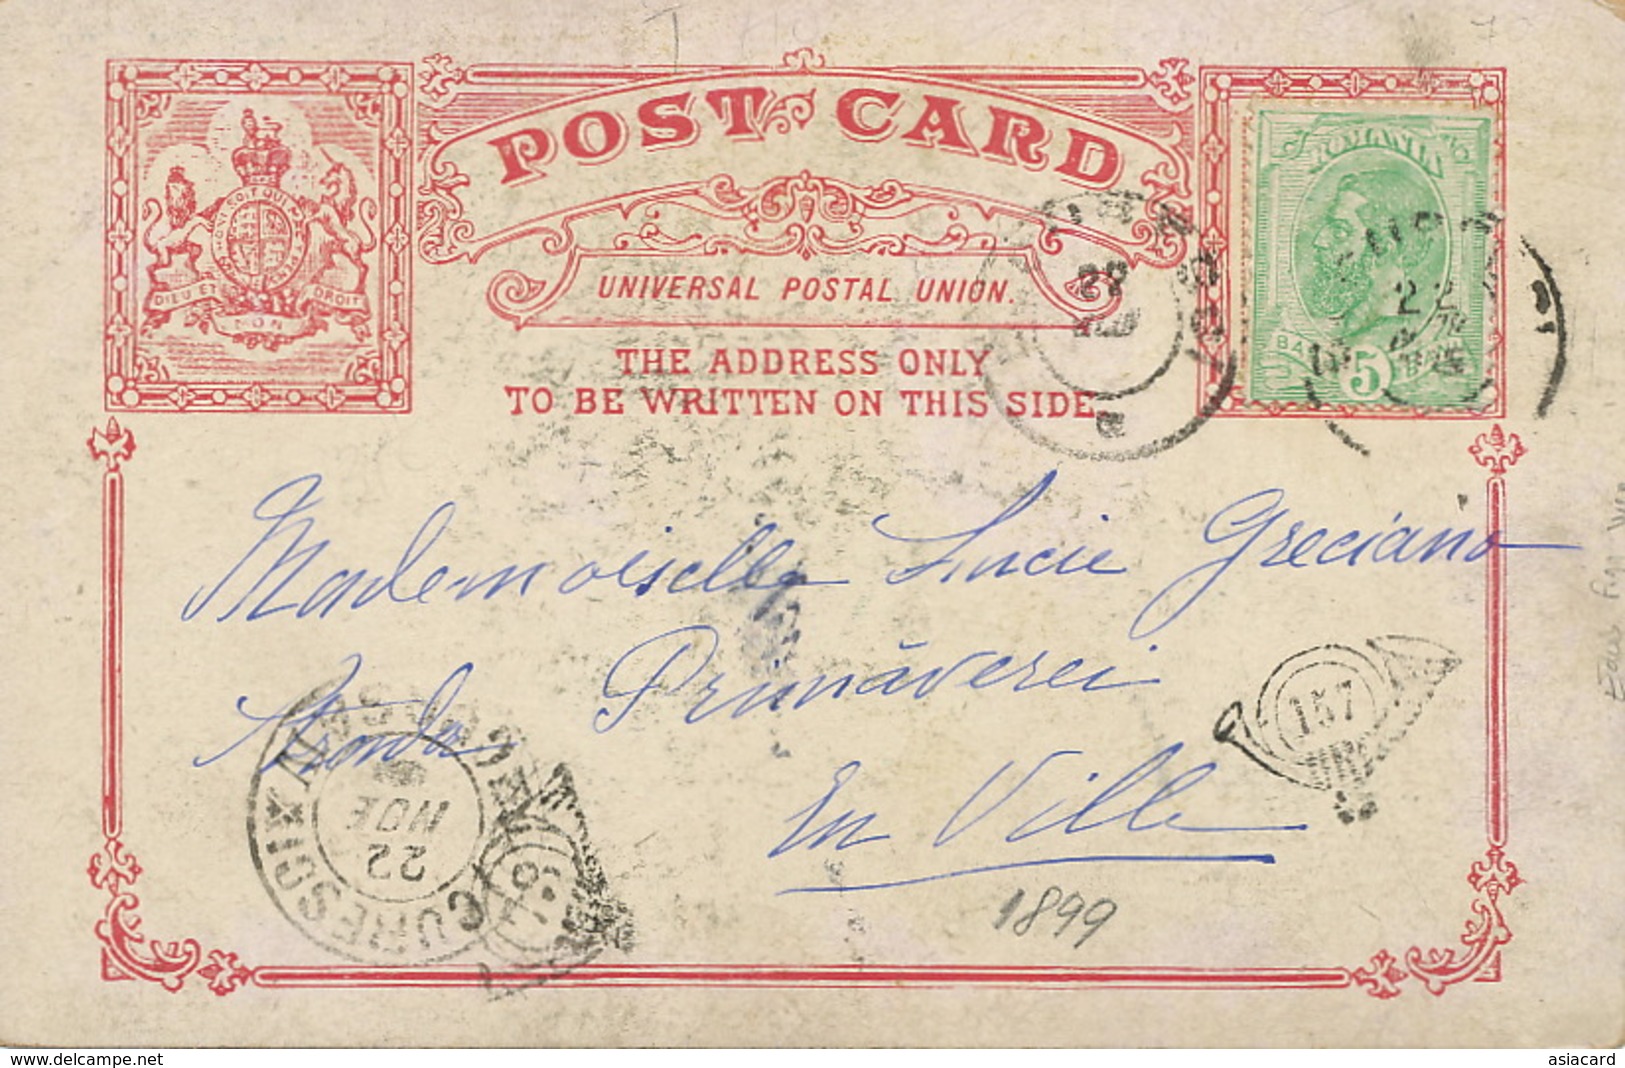 POST CARD
ROMANIA
HONI SOIT QUI MAL Y PENSE
DIEU ET MON DROIT
UNIVERSAL POSTAL UNION.
THE ADDRESS ONLY
TO BE WRITTEN ON THIS SIDE.
22
22
BANI
5
Mademoiselle Lucie Greciano
Strada Primăverei
En Ville
157
22
NOE
1899
delcampe.net
asiacard